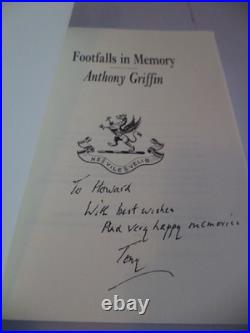 Footfalls in Memory
Anthony Griffin
To Howard
With best wishes
And very happy memories
Tony